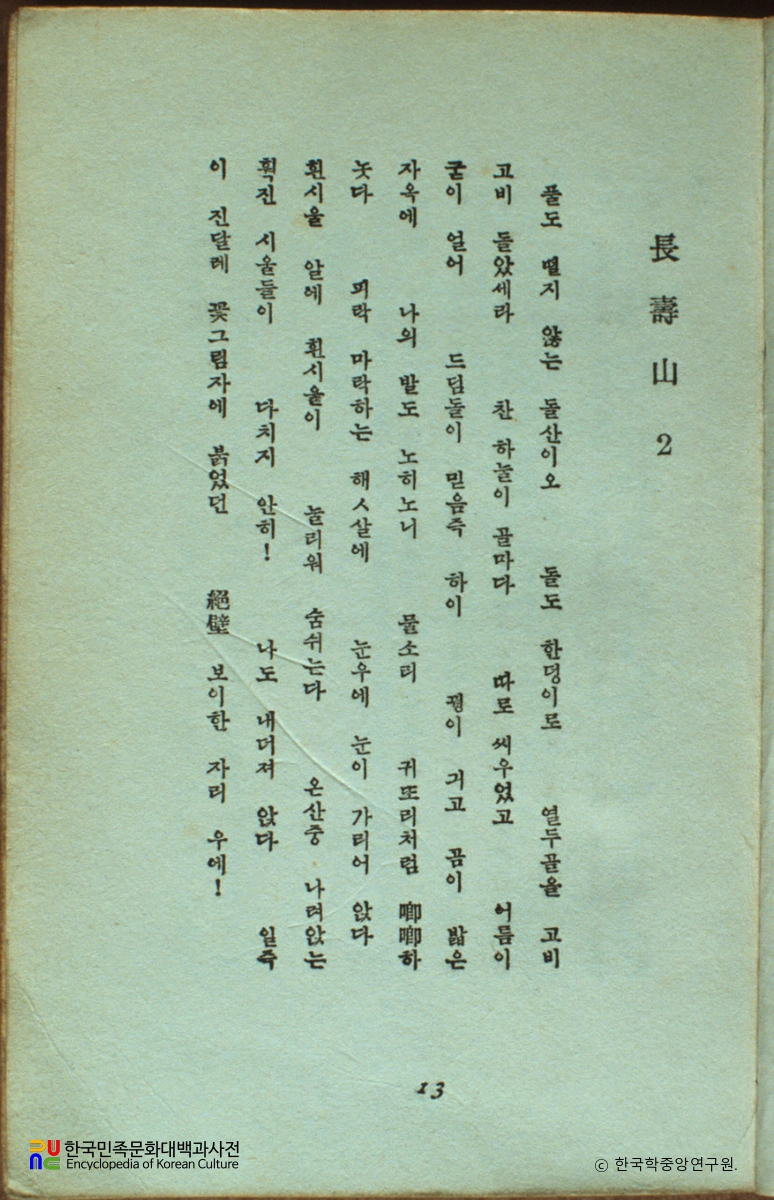 長壽山 2
풀도 떨지 않는 돌산이오 돌도 한덩이로 열두골을 고비
고비 돌았세라 찬 하눌이 골마다 따로 씨우었고 어름이
굳이 얼어 드딤돌이 믿음즉 하이 꿩이 긔고 곰이 밟은
자옥에 나의 발도 노히노니 물소리 귀또리처럼 喞喞하
놋다 피락 마락하는 해ㅅ살에 눈우에 눈이 가리어 앉다
흰시울 알에 흰시울이 눌리워 숨쉬는다 온산중 나려앉는
휙진 시울들이 다치지 안히! 나도 내더져 앉다 일즉
이 진달레 꽃그림자에 붉었던 絕壁 보이한 자리 우에!
13
한국민족문화대백과사전
Encyclopedia of Korean Culture
© 한국학중앙연구원.